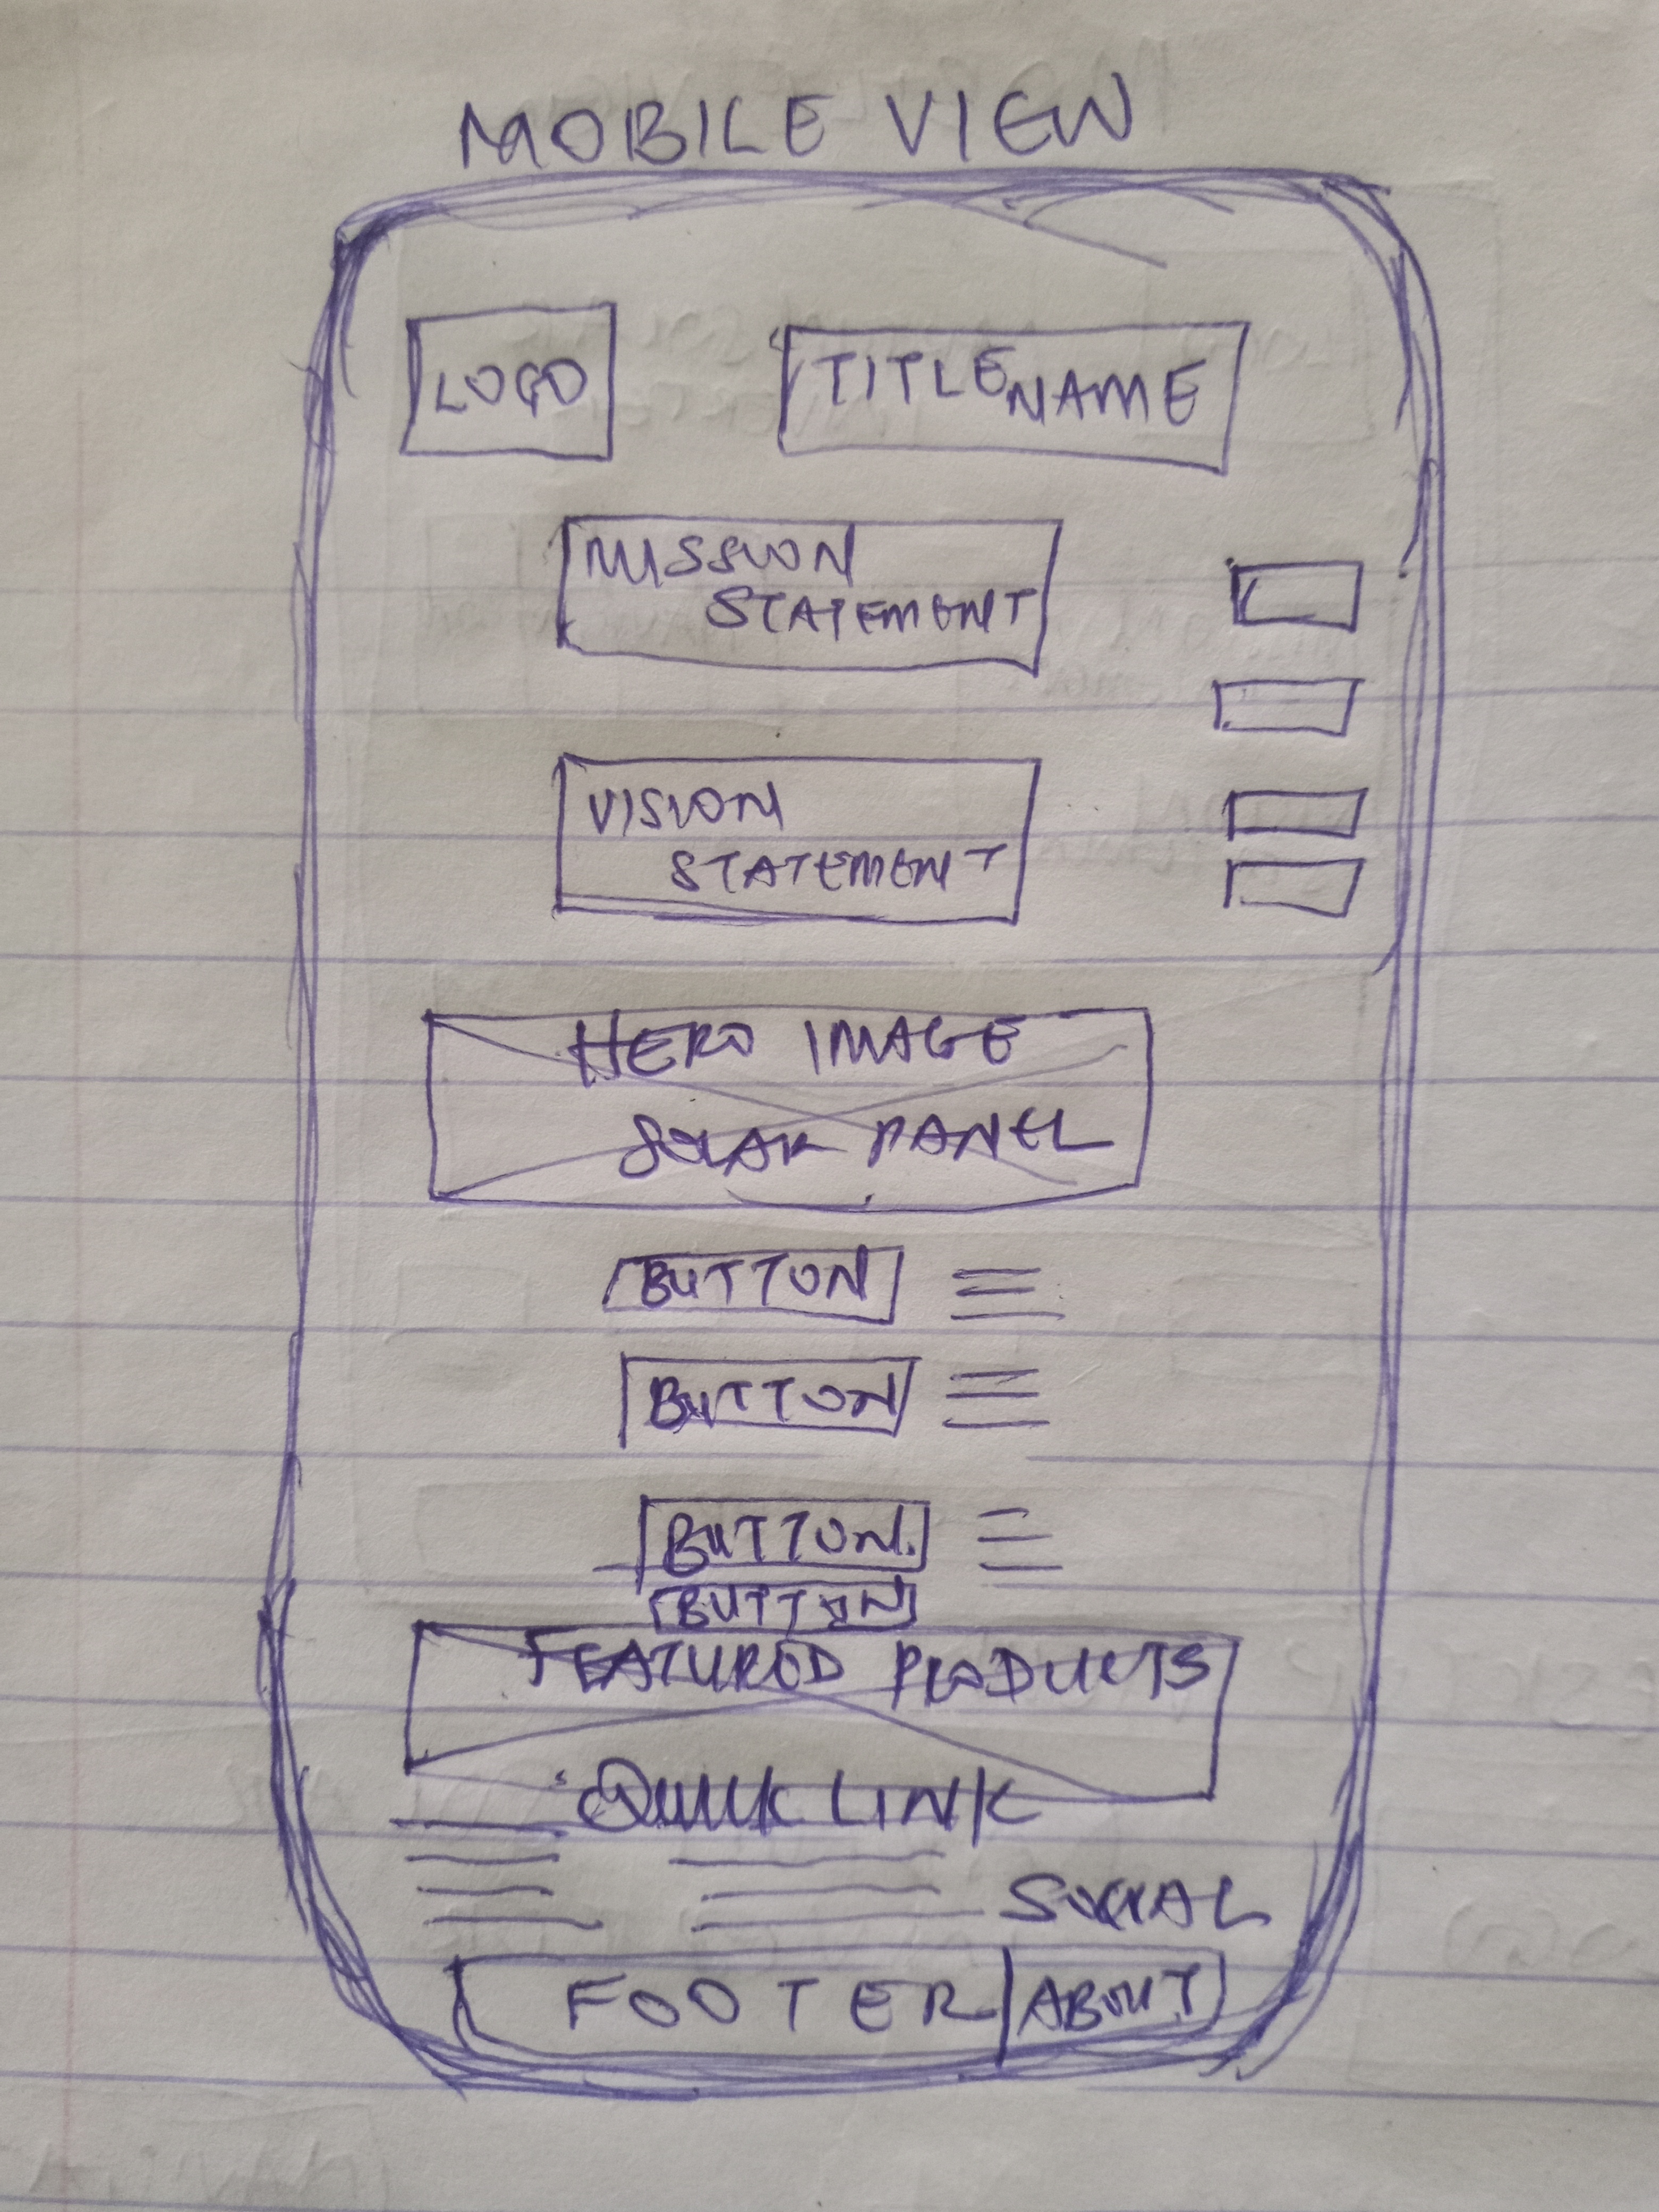 MOBILE VIEW
LOGO
TITLE NAME
MISSION
STATEMENT
VISION
STATEMENT
HERO IMAGE
SOLAR PANEL
BUTTON
BUTTON
BUTTON.
BUTTON
FEATURED PRODUCTS
QUICK LINK
SOCIAL
FOOTER
ABOUT